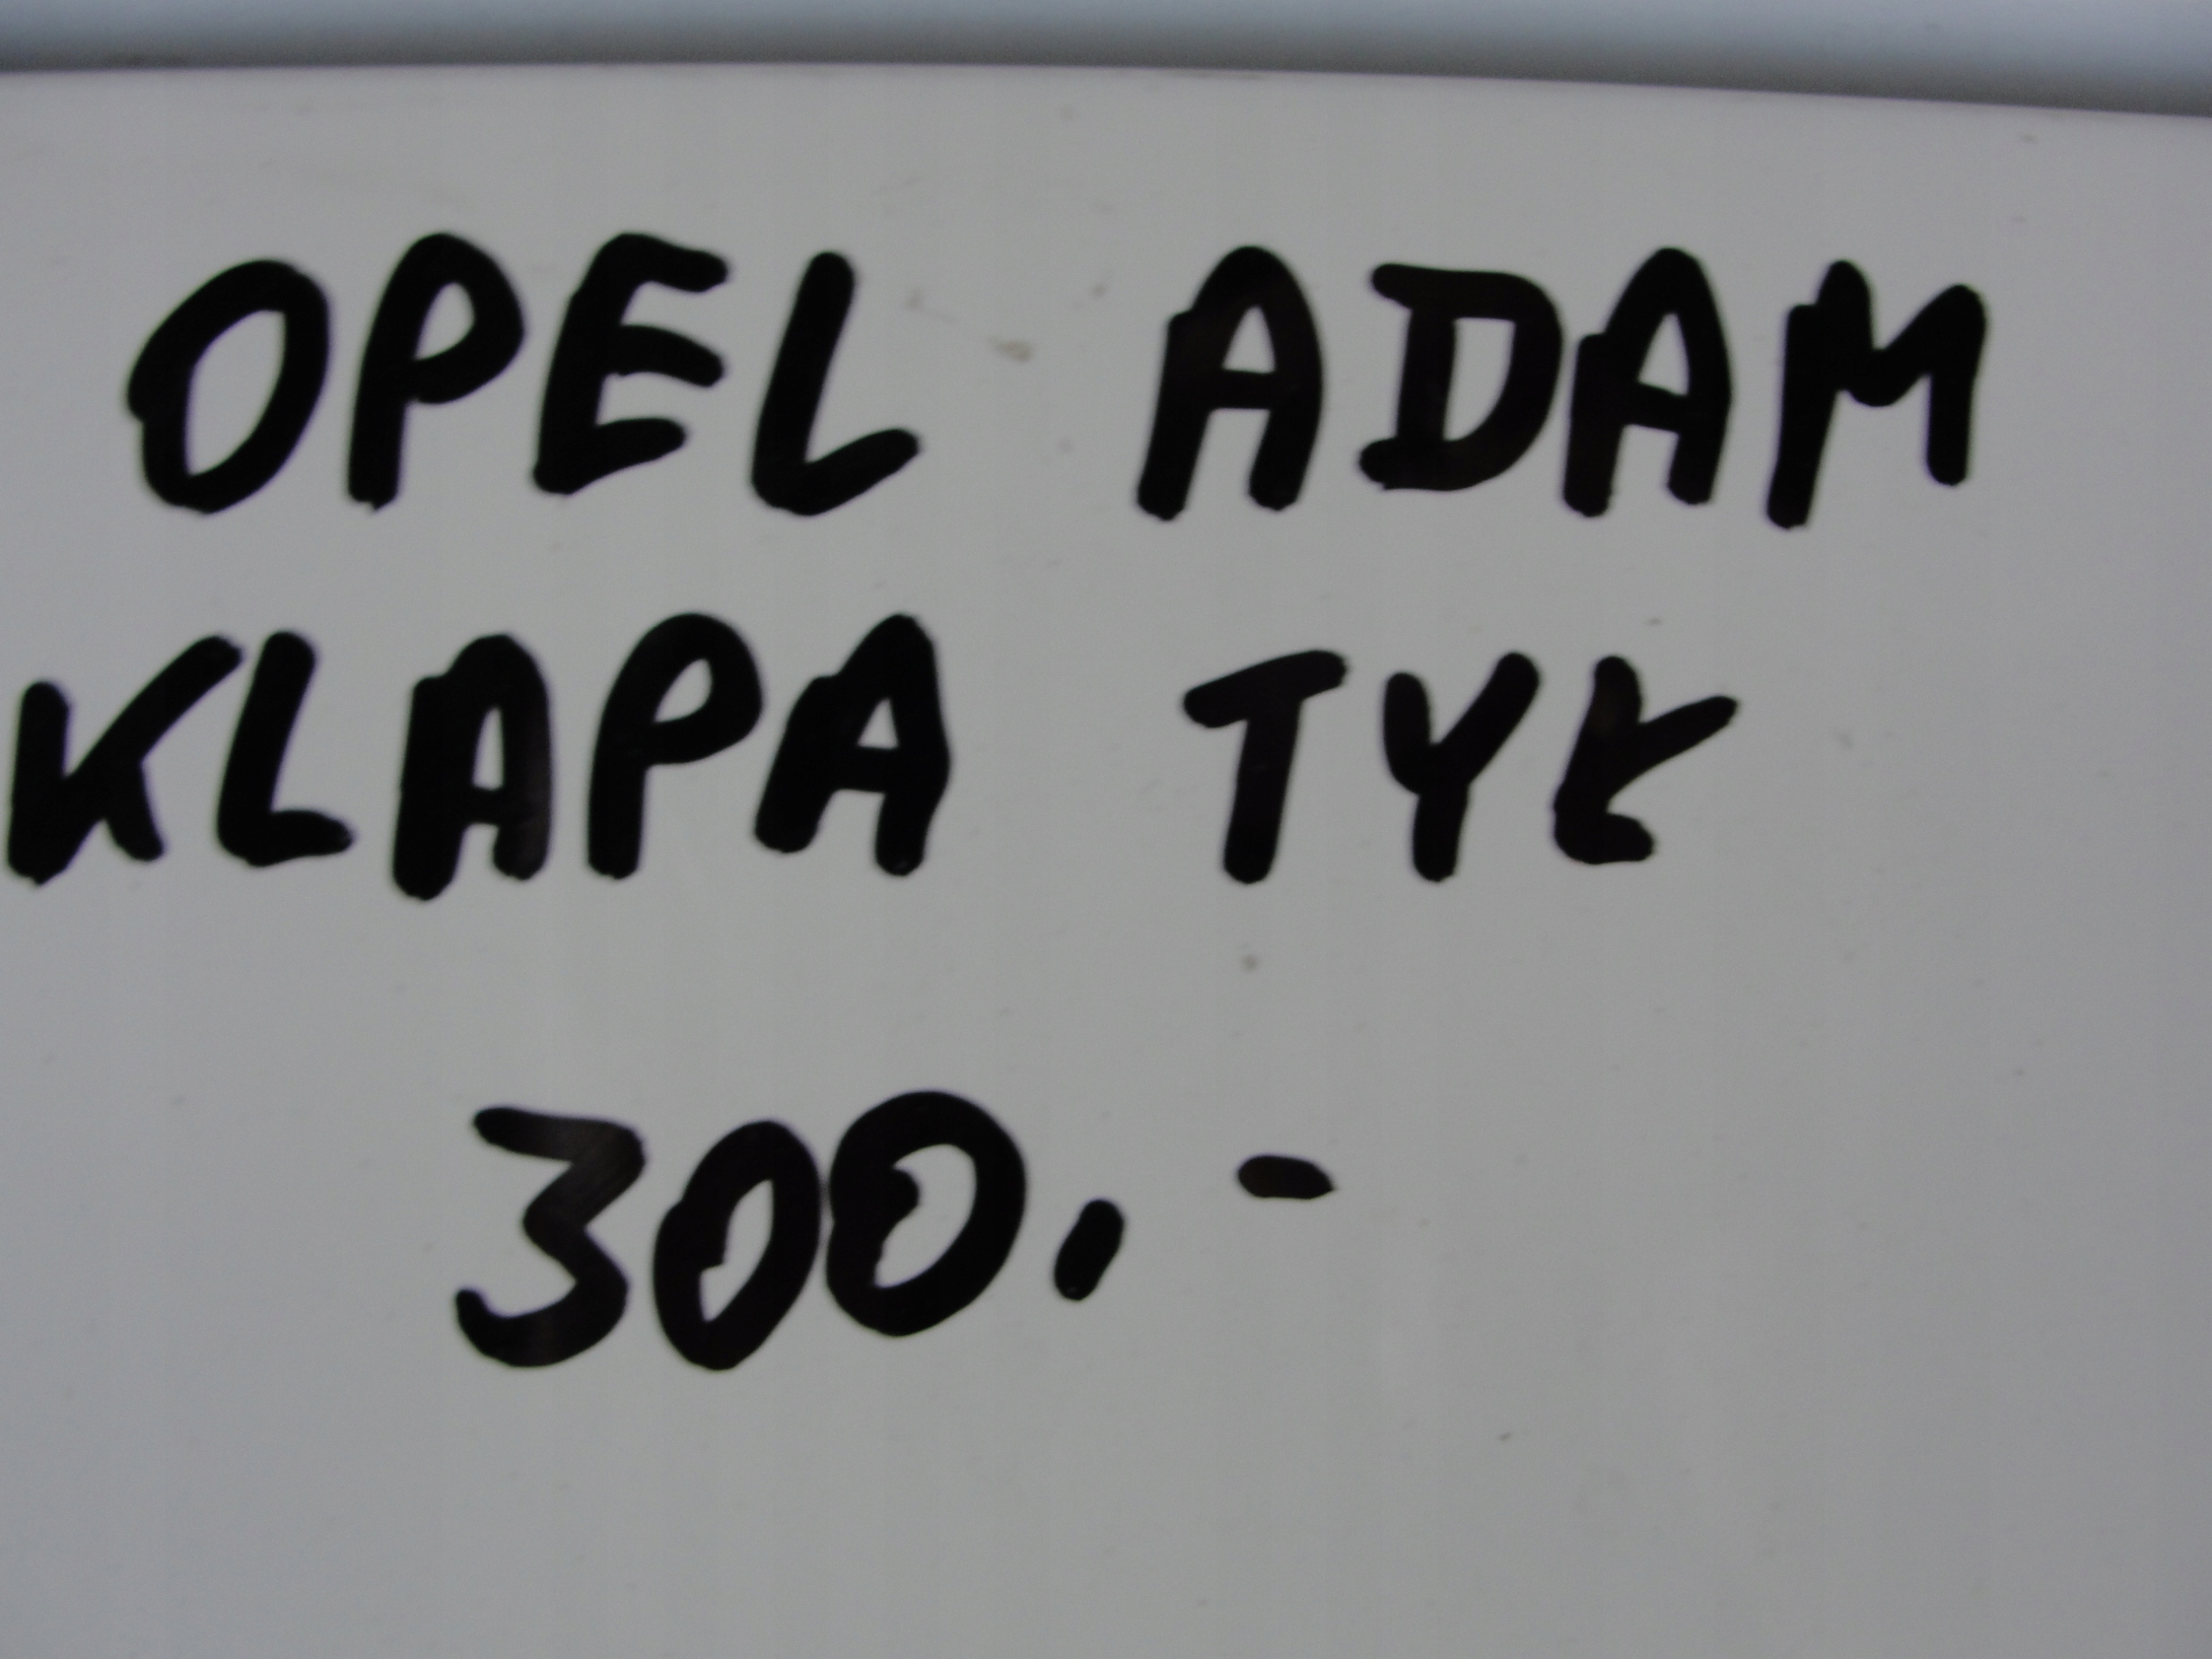 OPEL ADAM
KLAPA TYŁ
300,-